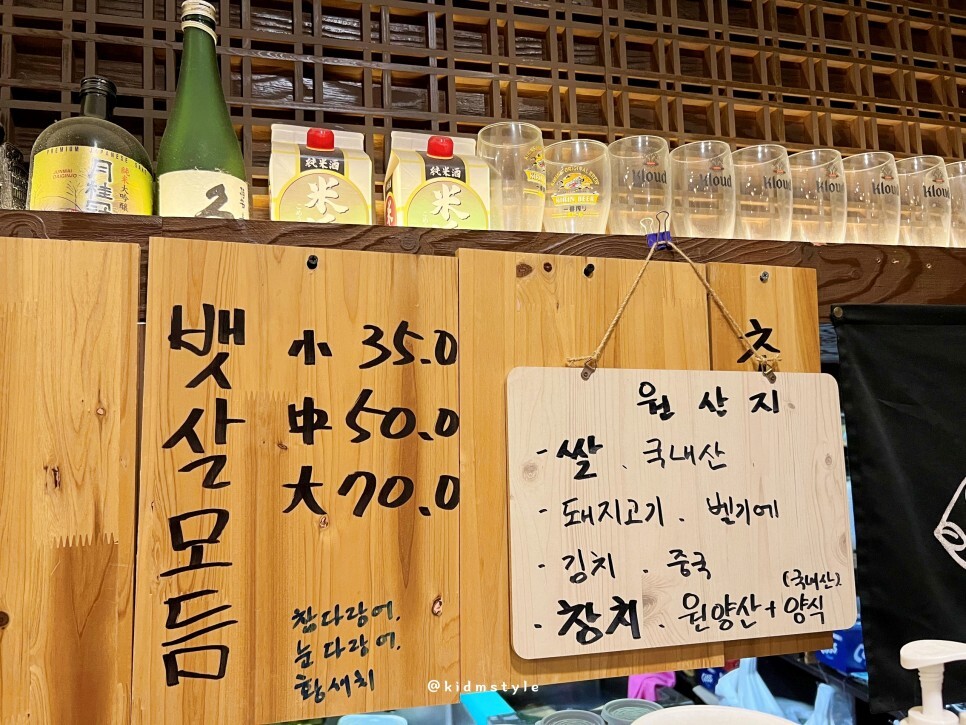 PREMIUM
月桂冠
純米大吟醸
久
純米酒
米
純米酒
米
KIRIN BEER
一番搾り
Kloud
Kloud
Kloud
Kloud
Kloud
뱃살모듬
小 35.0
中 50.0
大 70.0
참다랑어,
눈다랑어,
황새치
원산지
- 쌀 . 국내산
- 돼지고기 . 벨기에
- 김치 . 중국
(국내산)
. 참치 . 원양산 + 양식
@kidmstyle